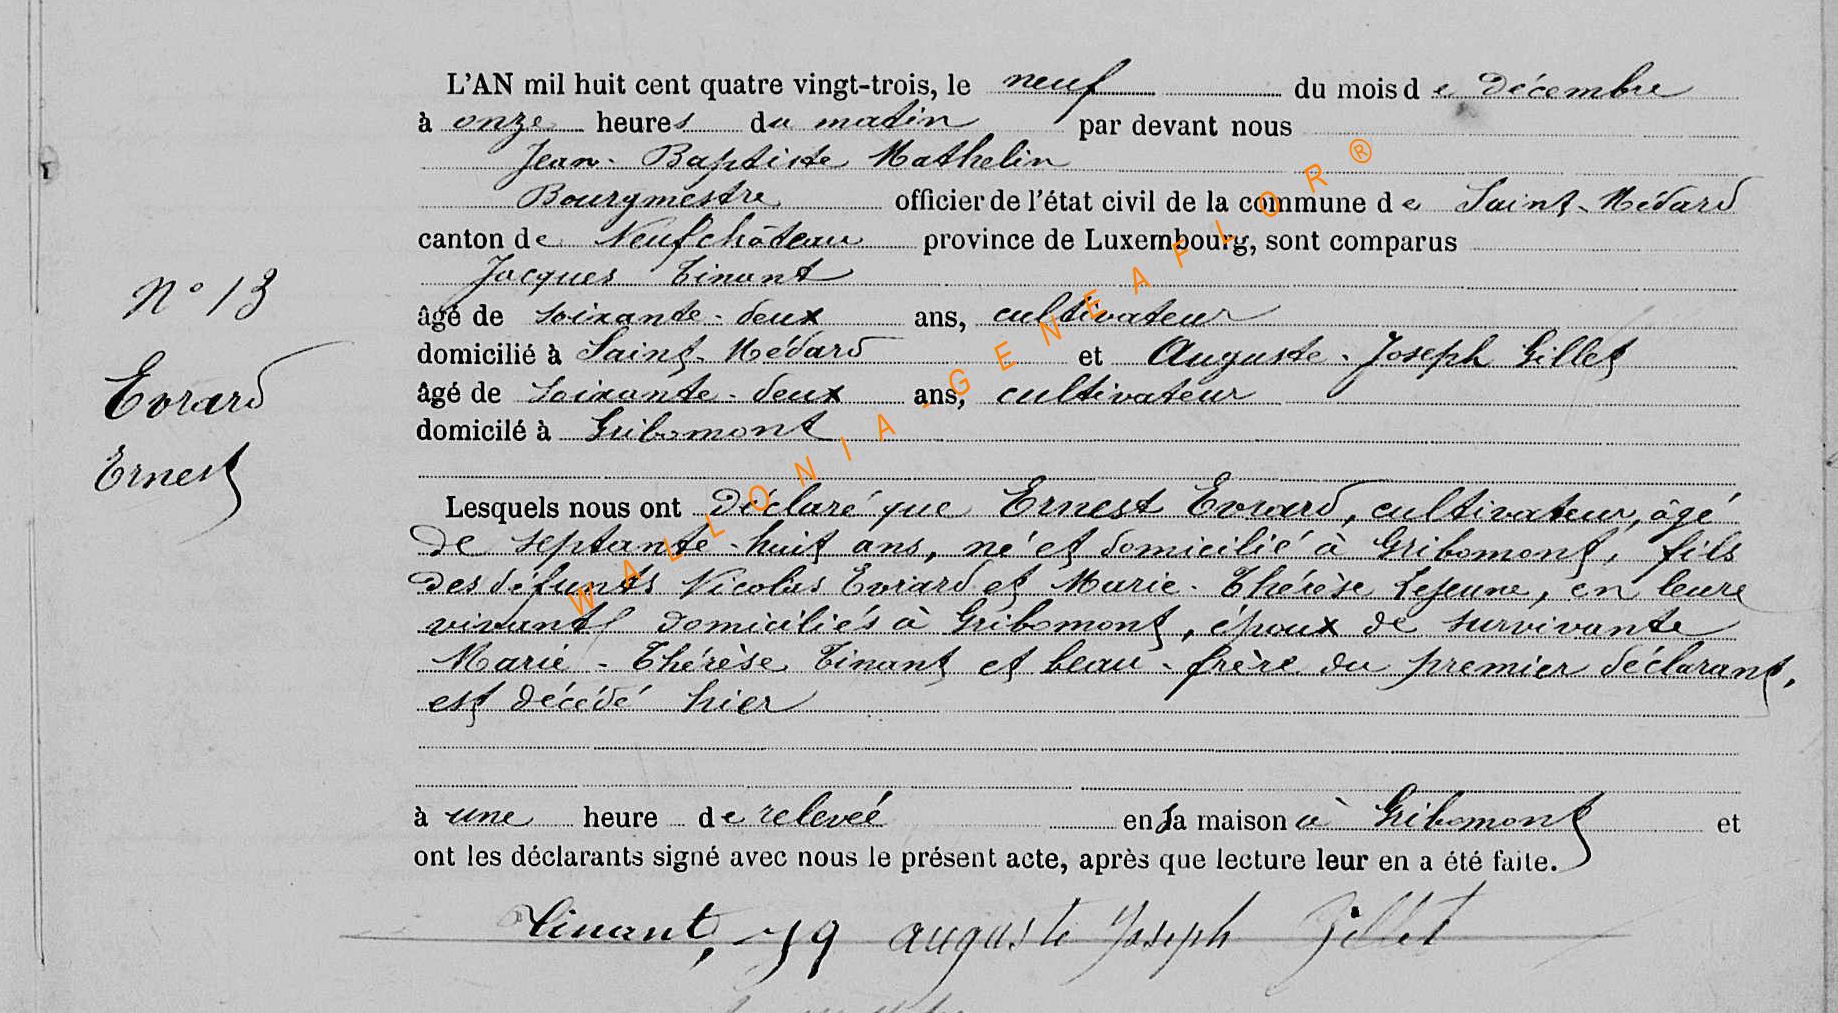 L'AN mil huit cent quatre vingt-trois, le neuf du mois de décembre
à onze heures du matin par devant nous
Jean-Baptiste Mathelin
Bourgmestre officier de l'état civil de la commune de Saint-Médard
canton de Neufchâteau province de Luxembourg, sont comparus
Jacques Tinant
âgé de soixante-deux ans, cultivateur
domicilié à Saint-Médard et Auguste-Joseph Gillet
âgé de soixante-deux ans, cultivateur
domicilé à Gribomont
N° 13
Evrard
Ernest
Lesquels nous ont déclaré que Ernest Evrard, cultivateur, âgé
de septante-huit ans, né et domicilié à Gribomont, fils
des défunts Nicolas Evrard et Marie-Thérèse Lejeune, en leurs
vivants domiciliés à Gribomont, époux de survivante
Marie-Thérèse Tinant et beau-frère du premier déclarant,
est décédé hier
à une heure de relevée en sa maison à Gribomont et
ont les déclarants signé avec nous le présent acte, après que lecture leur en a été faite.
Tinant, J9 auguste Joseph Gillet
WALLONIA-GENEAFLOR®